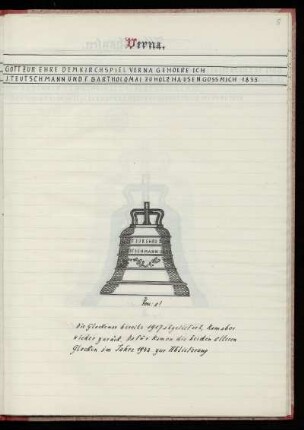 Verna.
GOTT ZUR EHRE DEM KIRCHSPIEL VERNA GEHOERE ICH
J. TEUTSCHMANN UND F. BARTHOLOMAI ZU HOLZHAUSEN GOSS MICH 1853
T ZUR EHRE D
UTSCHMANN U
Die Glocke war bereits 1917 abgeliefert, kam aber
wieder zurück. Dafür kamen die beiden älteren
Glocken im Jahre 1942 zur Ablieferung